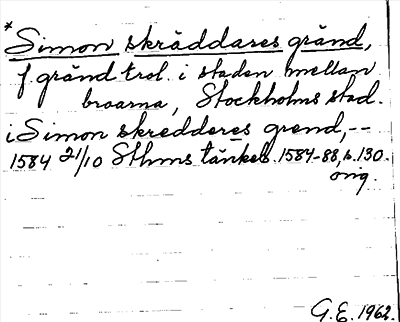 * Simon skräddares gränd,
f. gränd trol. i staden mellan
broarna, Stockholms stad.
i Simon skredderes grend, --
1584 21/10 Sthms tänkeb. 1584-88, s. 130.
orig.
G.E. 1962.